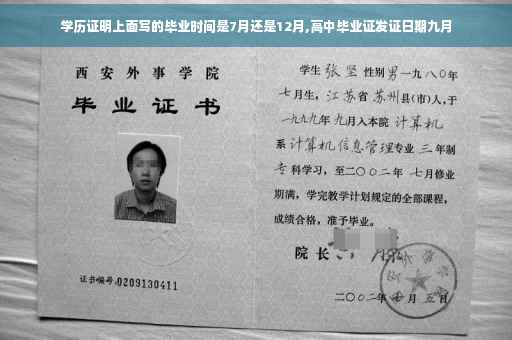 学历证明上面写的毕业时间是7月还是12月,高中毕业证发证日期九月
西安外事学院
毕业证书
证书编号:0209130411
学生 张坚 性别男 一九八〇年
七月生,江苏省苏州县(市)人,于
一九九九年九月入本院 计算机
系 计算机信息管理专业 三年制
专科学习,至二〇〇二年 七月修业
期满,学完教学计划规定的全部课程,
成绩合格,准予毕业。
院长
二〇〇二年 月五日